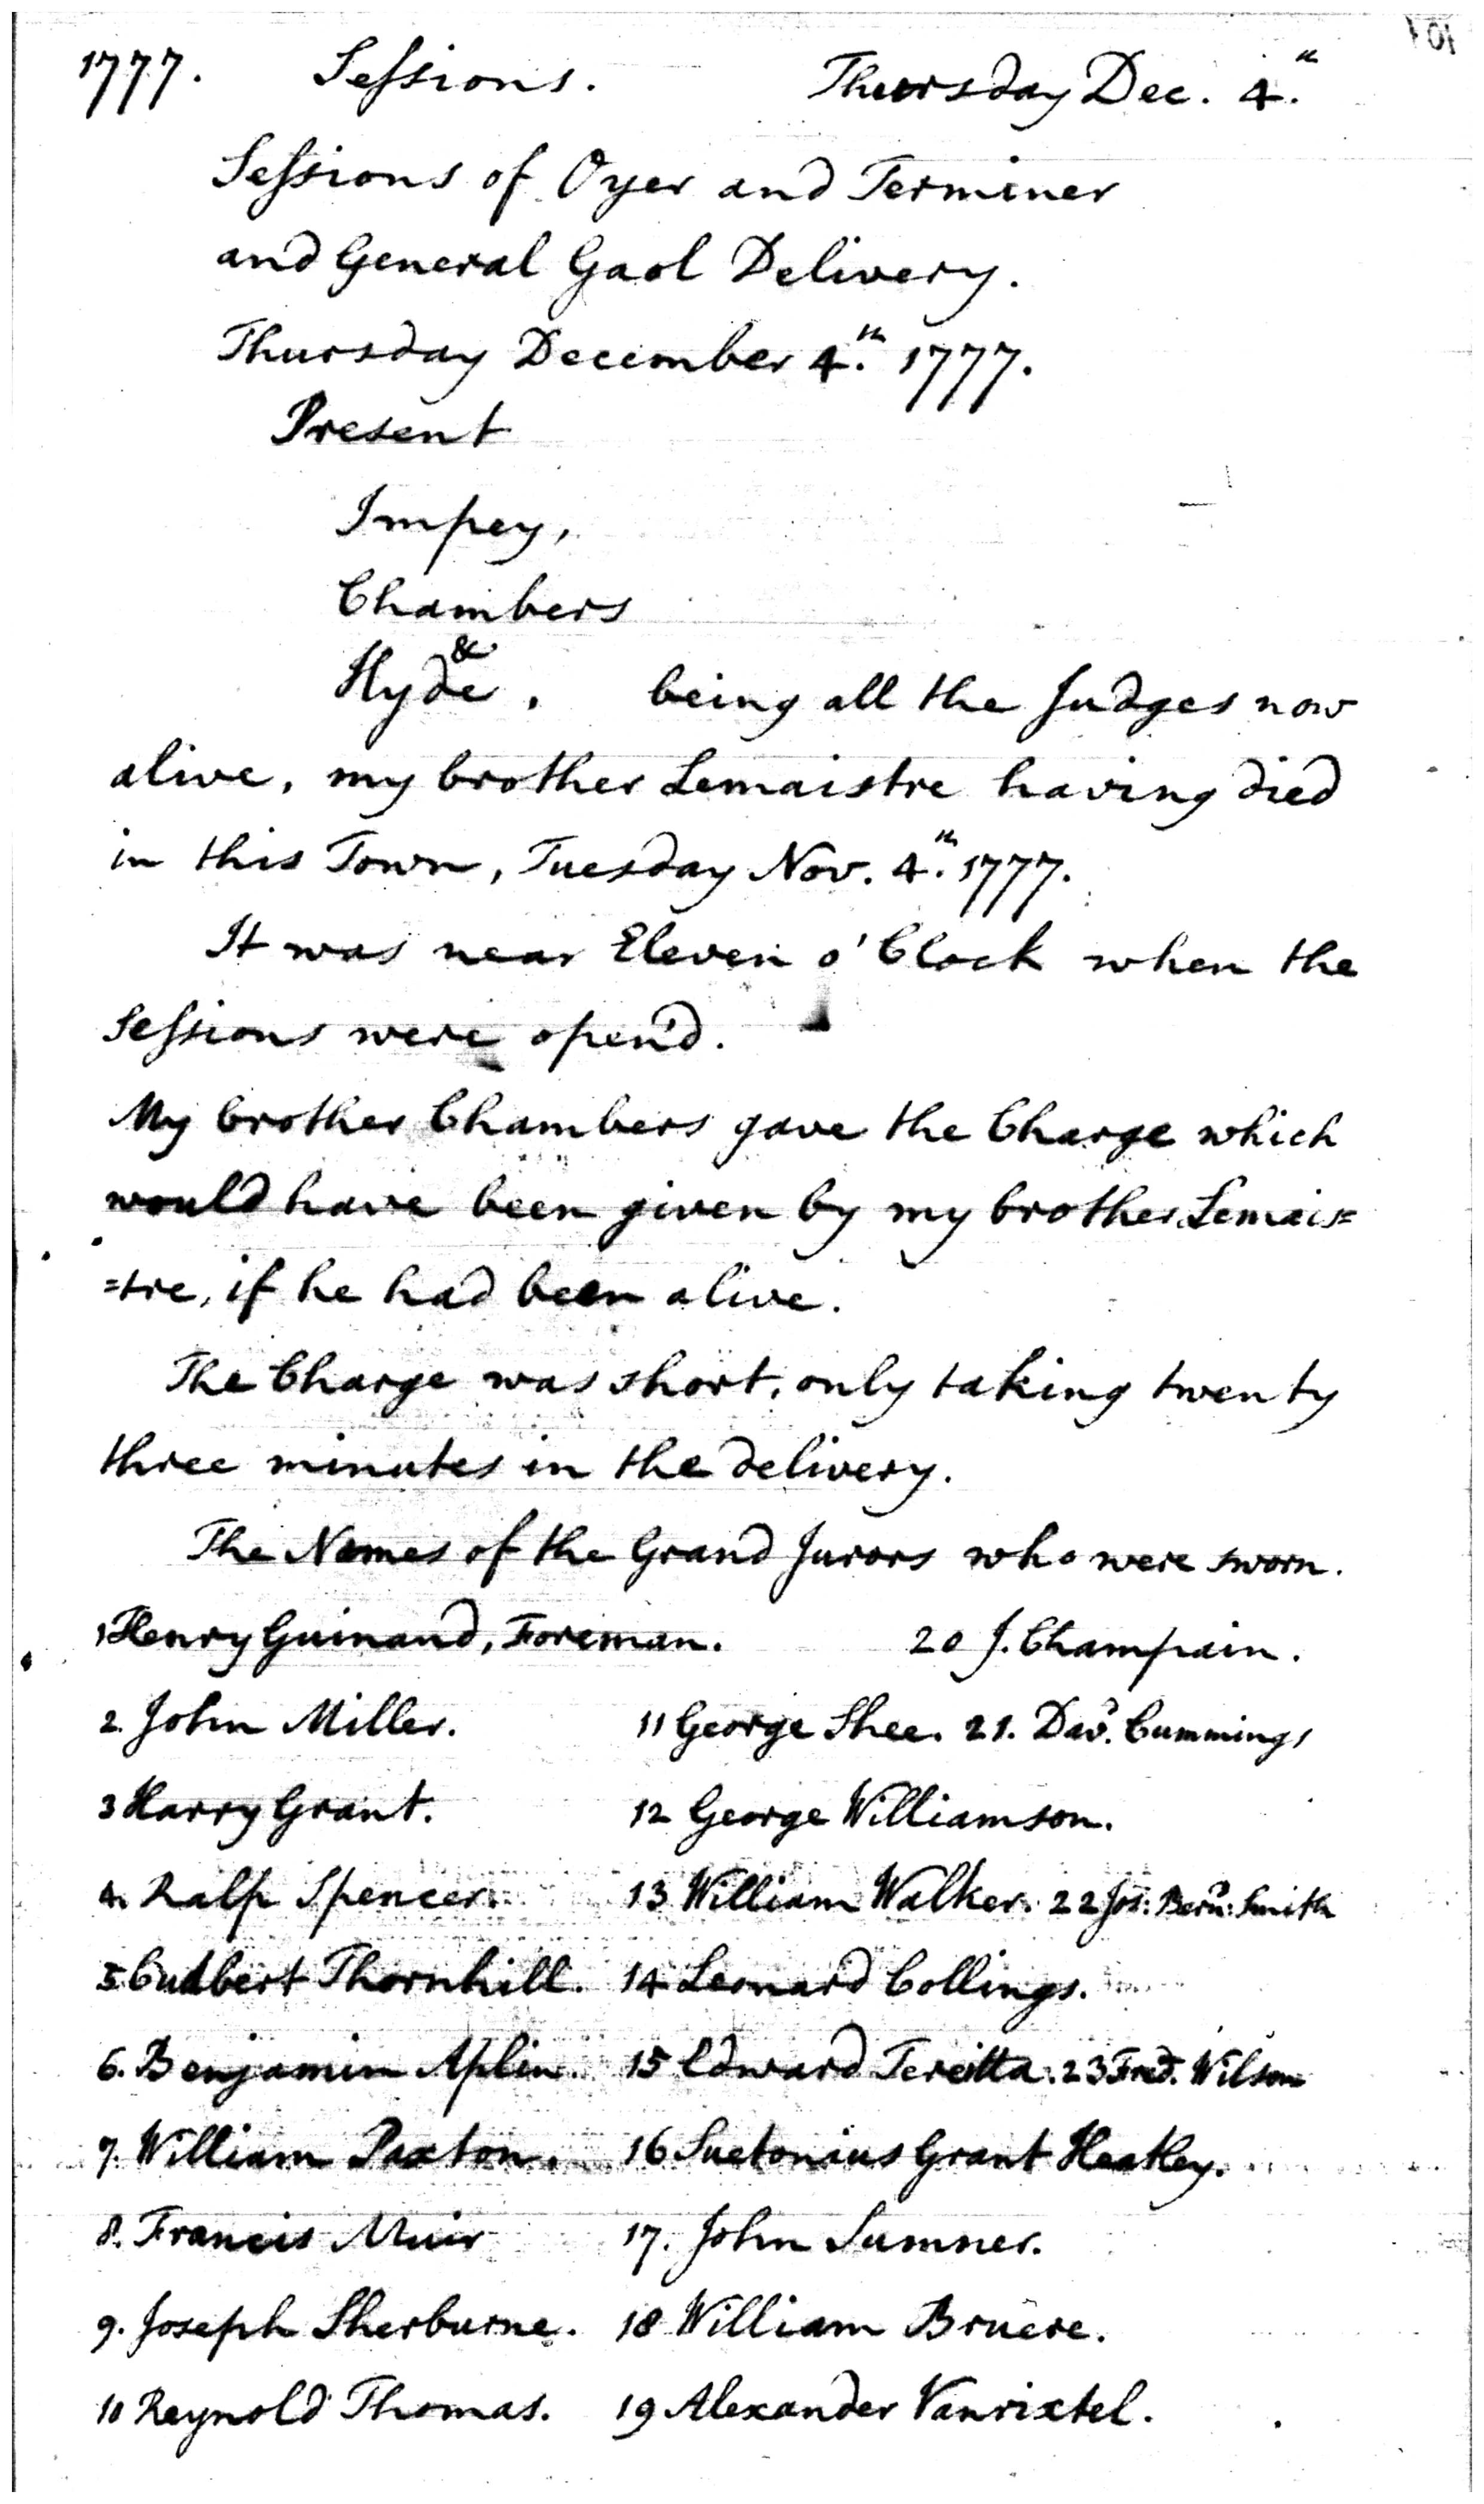 1777. Sessions. Thursday Dec. 4.th
Sessions of Oyer and Terminer
and General Gaol Delivery.
Thursday December 4.th 1777.
Present
Impey,
Chambers
&
Hyde, being all the Judges now
alive, my brother Lemaistre having died
in this Town, Tuesday Nov. 4.th 1777.
It was near Eleven o'Clock when the
Sessions were open'd.
My brother Chambers gave the Charge which
would have been given by my brother Lemais=
=tre, if he had been alive.
The Charge was short, only taking twenty
three minutes in the delivery.
The Names of the Grand Jurors who were sworn.
1 Henry Guinand, Foreman. 20 J. Champain.
2. John Miller. 11 George Shee. 21. Dav.d Cummings
3 Harry Grant. 12 George Williamson.
4. Ralp Spencer. 13 William Walker. 22 Jos: Bern.d: Smith
5. Cudbert Thornhill. 14 Leonard Collings.
6. Benjamin Aplin. 15 Edward Teretta. 23 Fred. Wilson
7. William Paxton. 16 Suetonius Grant Heatley.
8. Francis Muir 17. John Sumner.
9. Joseph Sherburne. 18 William Bruere.
10 Reynold Thomas. 19 Alexander Vanrixtel.